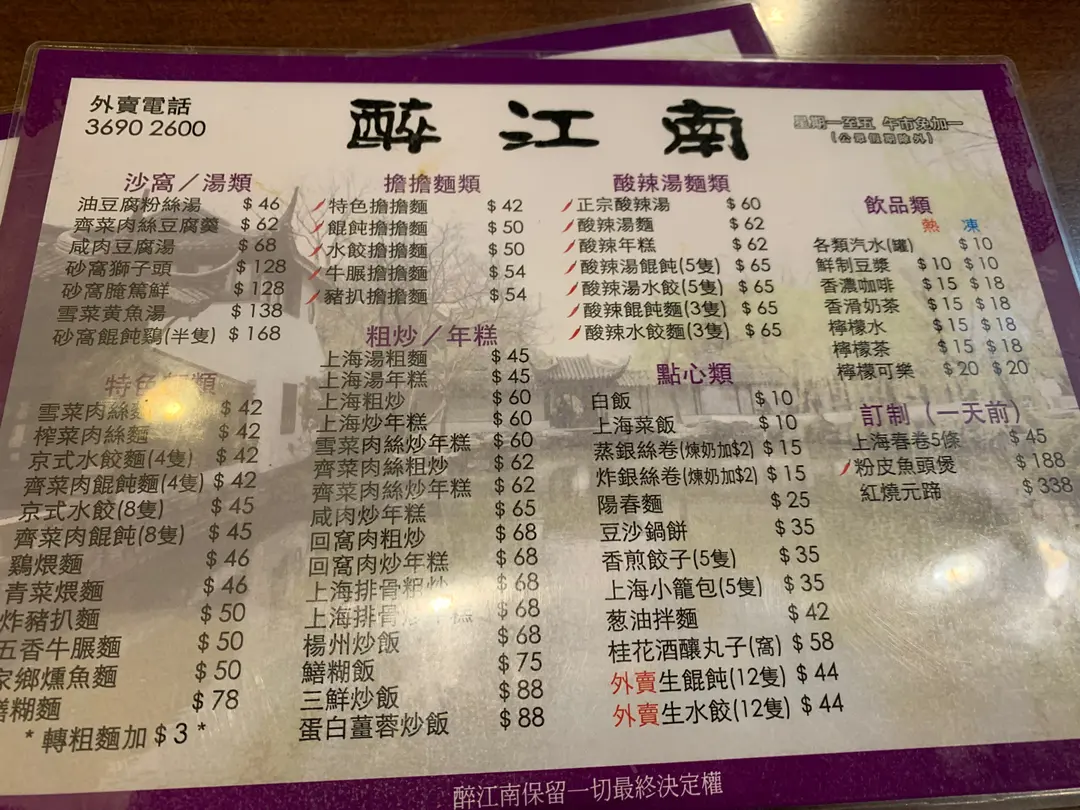 外賣電話
3690 2600
醉江南
星期一至五 午市免加一
(公眾假期除外)
沙窩／湯類
油豆腐粉絲湯 $ 46
齊菜肉絲豆腐羹 $ 62
咸肉豆腐湯 $ 68
砂窩獅子頭 $ 128
砂窩腌篤鮮 $ 128
雪菜黄魚湯 $ 138
砂窩餛飩鷄(半隻) $ 168
特色 類
雪菜肉絲麵 $ 42
榨菜肉絲麵 $ 42
京式水餃麵(4隻) $ 42
齊菜肉餛飩麵(4隻) $ 42
京式水餃(8隻) $ 45
齊菜肉餛飩(8隻) $ 45
鷄煨麵 $ 46
青菜煨麵 $ 46
炸豬扒麵 $ 50
五香牛𦟌麵 $ 50
家鄉燻魚麵 $ 50
鱔糊麵 $ 78
* 轉粗麵加 $ 3 *
擔擔麵類
特色擔擔麵 $ 42
餛飩擔擔麵 $ 50
水餃擔擔麵 $ 50
牛𦟌擔擔麵 $ 54
豬扒擔擔麵 $ 54
粗炒／年糕
上海湯粗麵 $ 45
上海湯年糕 $ 45
上海粗炒 $ 60
上海炒年糕 $ 60
雪菜肉絲炒年糕 $ 60
齊菜肉絲粗炒 $ 62
齊菜肉絲炒年糕 $ 62
咸肉炒年糕 $ 65
回窩肉粗炒 $ 68
回窩肉炒年糕 $ 68
上海排骨粗炒 $ 68
上海排骨炒年糕 $ 68
楊州炒飯 $ 68
鱔糊飯 $ 75
三鮮炒飯 $ 88
蛋白薑蓉炒飯 $ 88
酸辣湯麵類
正宗酸辣湯 $ 60
酸辣湯麵 $ 62
酸辣年糕 $ 62
酸辣湯餛飩(5隻) $ 65
酸辣湯水餃(5隻) $ 65
酸辣餛飩麵(3隻) $ 65
酸辣水餃麵(3隻) $ 65
點心類
白飯 $ 10
上海菜飯 $ 10
蒸銀絲卷(煉奶加$2) $ 15
炸銀絲卷(煉奶加$2) $ 15
陽春麵 $ 25
豆沙鍋餅 $ 35
香煎餃子(5隻) $ 35
上海小籠包(5隻) $ 35
葱油拌麵 $ 42
桂花酒釀丸子(窩) $ 58
外賣生餛飩(12隻) $ 44
外賣生水餃(12隻) $ 44
飲品類
熱 凍
各類汽水(罐) $ 10
鮮制豆漿 $ 10 $ 10
香濃咖啡 $ 15 $ 18
香滑奶茶 $ 15 $ 18
檸檬水 $ 15 $ 18
檸檬茶 $ 15 $ 18
檸檬可樂 $ 20 $ 20
訂制（一天前）
上海春卷5條 $ 45
粉皮魚頭煲 $ 188
紅燒元蹄 $ 338
醉江南保留一切最終決定權